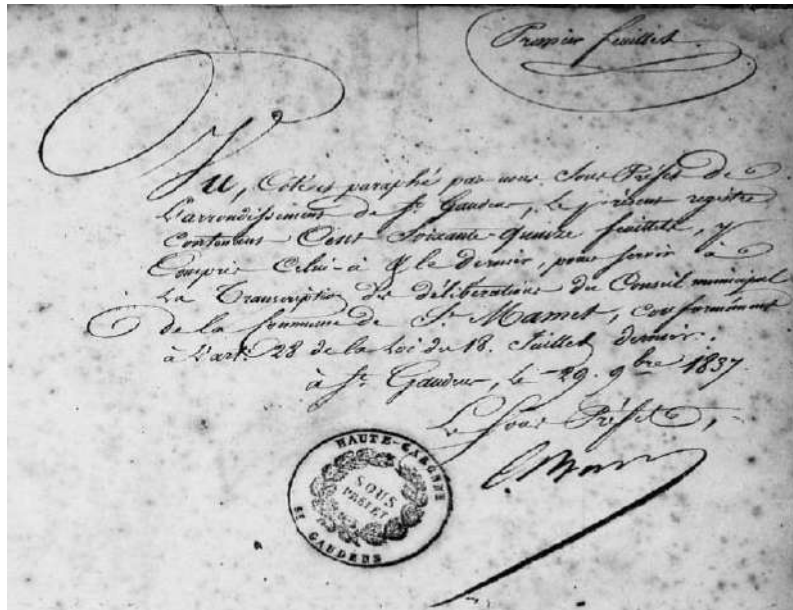 Premier feuillet.
Vu, Coté et paraphé par nous Sous Préfet de
L'arrondissement de St. Gaudens, le présent registre
Contenant Cent Soixante-Quinze feuillets, y
Compris Celui-à & le dernier, pour servir à
La Transcription des délibérations du Conseil municipal
de la Commune de St. Mamet, conformément
à L'art. 28 de la Loi du 18. Juillet dernier.
à St. Gaudens, le 29. 9bre 1837.
Le Sous Préfet,
HAUTE-GARONNE
SOUS
PREFET
St GAUDENS